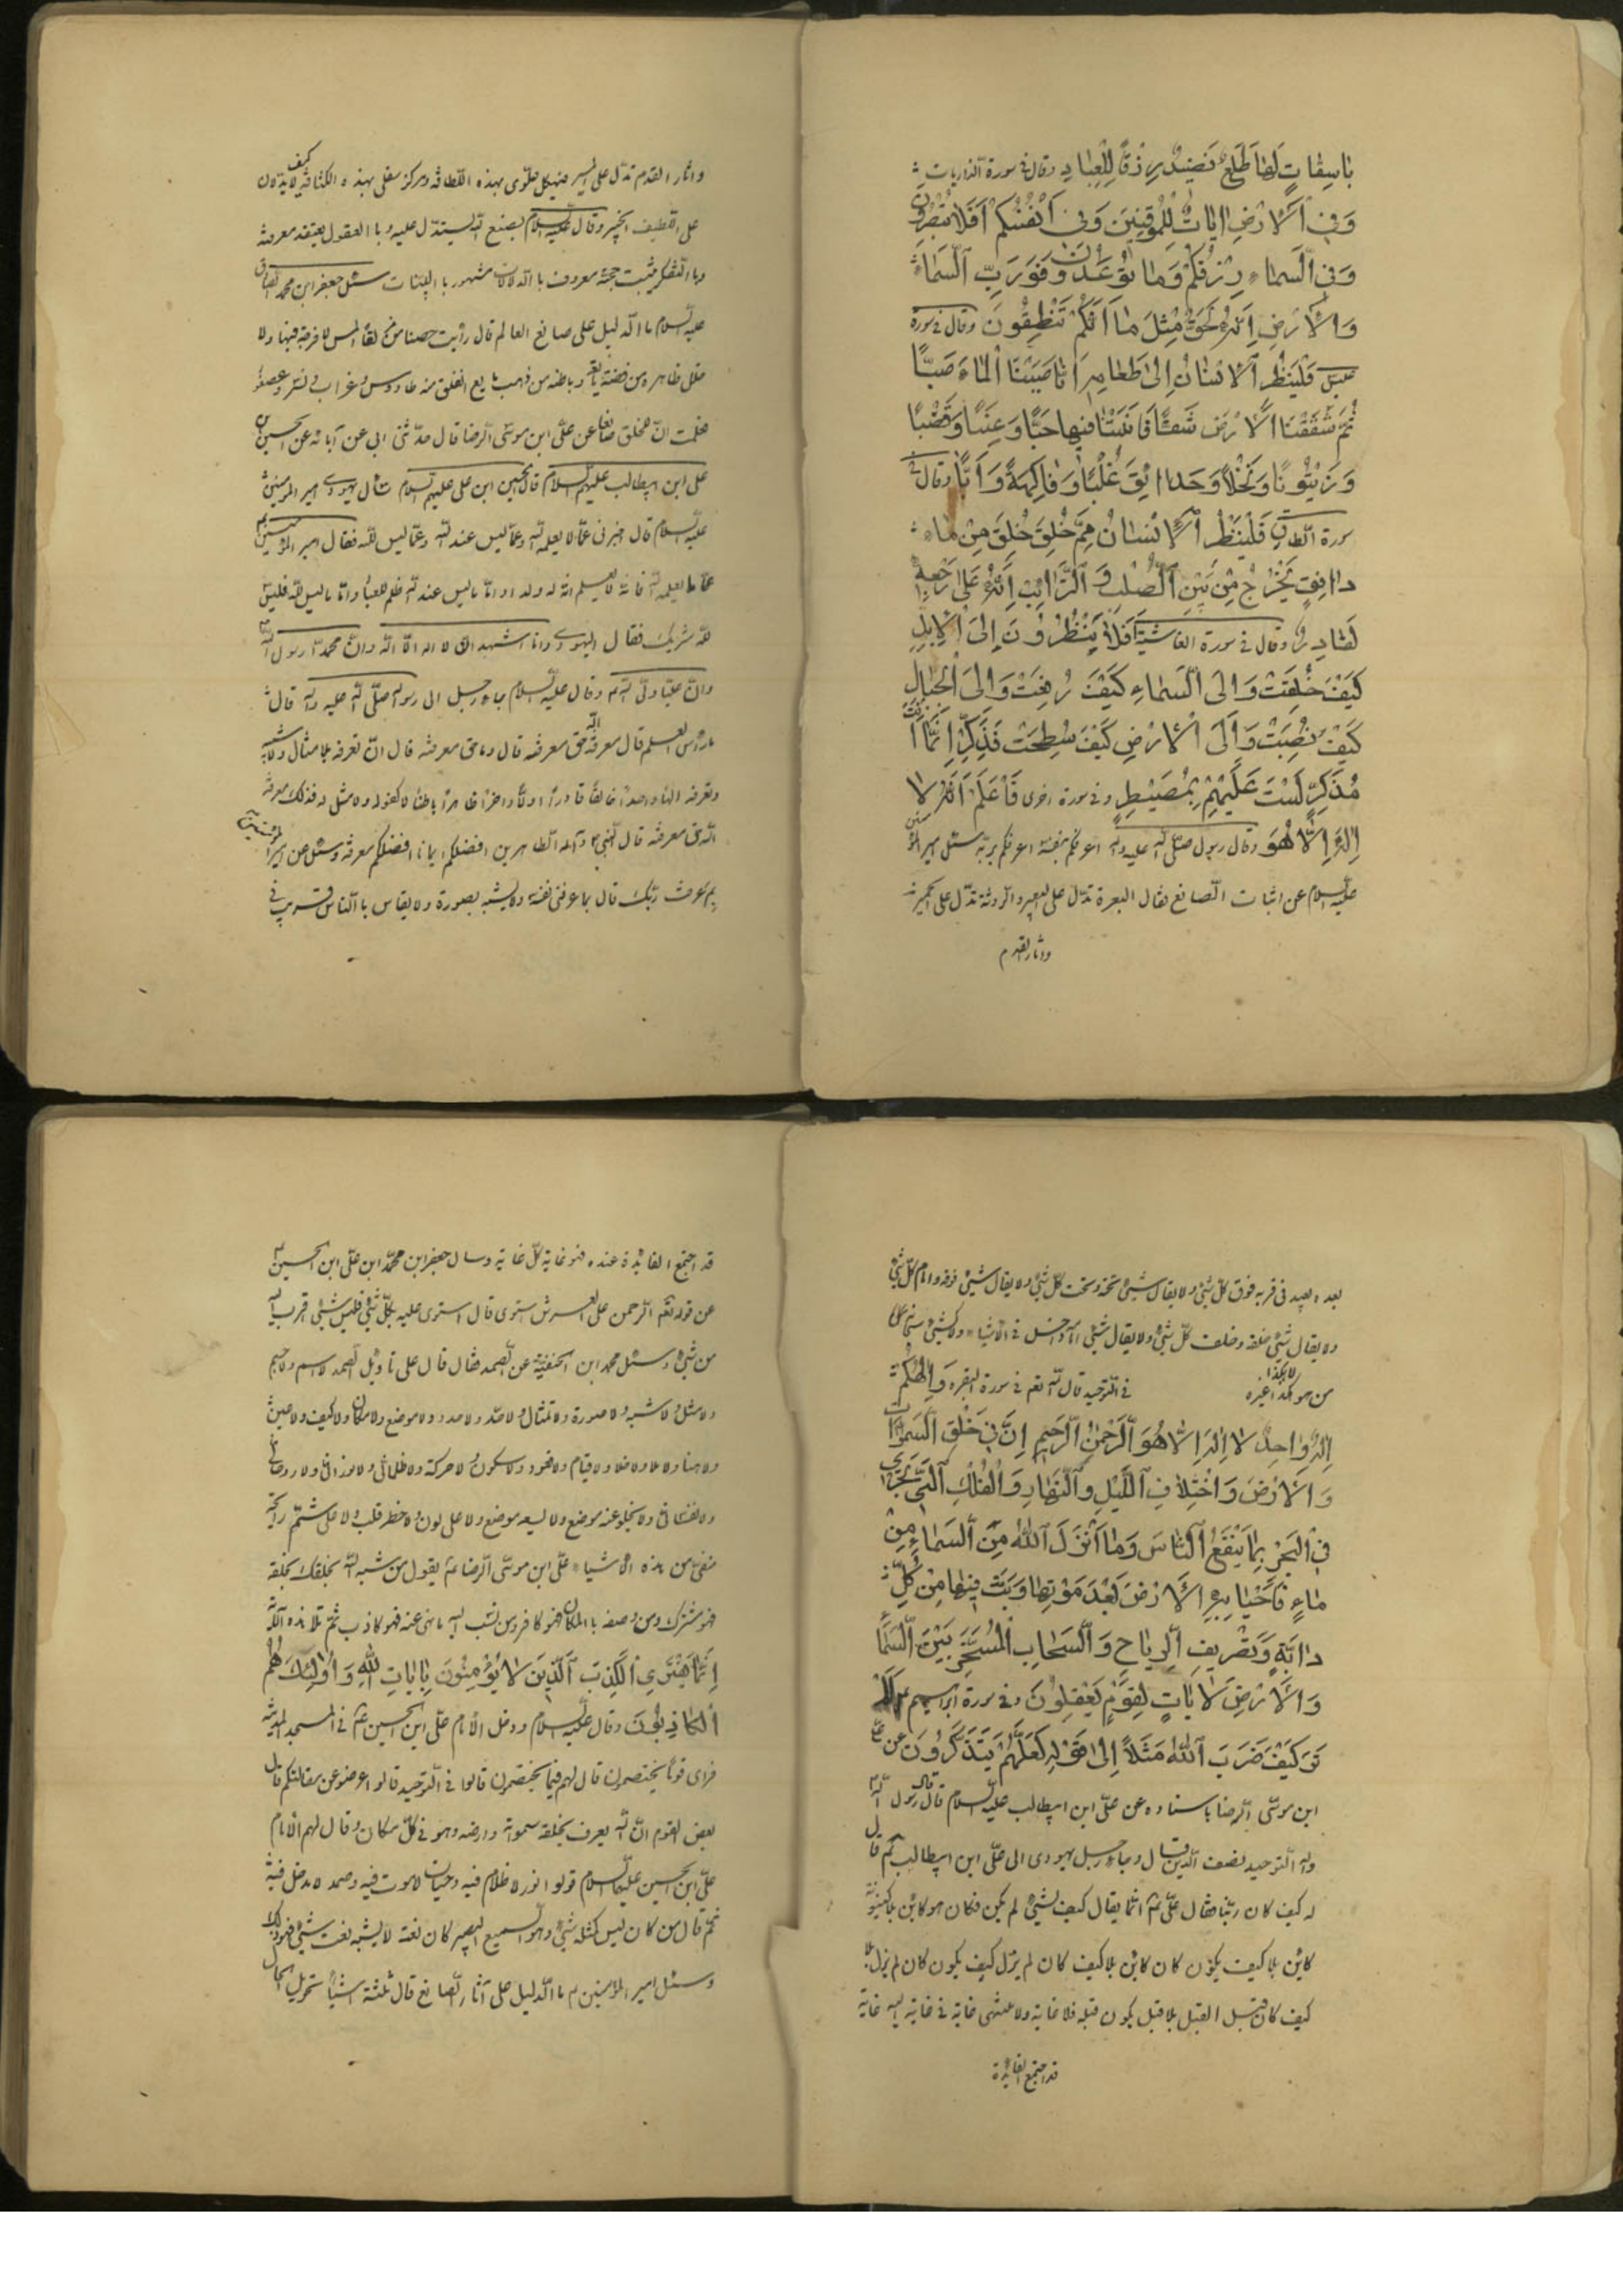 بَاسِقَاتٍ لَهَا طَلْعٌ نَضِيدٌ رِزْقًا لِلْعِبَادِ وقال في سورة الذاريات
وَفِي الْأَرْضِ اٰيَاتٌ لِلْمُوقِنِينَ وَفِي أَنْفُسِكُمْ أَفَلَا تُبْصِرُونَ
وَفِي السَّمَاءِ رِزْقُكُمْ وَمَا تُوعَدُونَ فَوَرَبِّ السَّمَاءِ
وَالْأَرْضِ إِنَّهُ لَحَقٌّ مِثْلَ مَا أَنَّكُمْ تَنْطِقُونَ وقال في سورة
عبس فَلْيَنْظُرِ الْإِنْسَانُ إِلَى طَعَامِهِ أَنَّا صَبَبْنَا الْمَاءَ صَبًّا
ثُمَّ شَقَقْنَا الْأَرْضَ شَقًّا فَأَنْبَتْنَا فِيهَا حَبًّا وَعِنَبًا وَقَضْبًا
وَزَيْتُونًا وَنَخْلًا وَحَدَائِقَ غُلْبًا وَفَاكِهَةً وَأَبًّا وقال في
سورة الطارق فَلْيَنْظُرِ الْإِنْسَانُ مِمَّ خُلِقَ خُلِقَ مِنْ مَاءٍ
دَافِقٍ يَخْرُجُ مِنْ بَيْنِ الصُّلْبِ وَالتَّرَائِبِ إِنَّهُ عَلَى رَجْعِهِ
لَقَادِرٌ وقال في سورة الغاشية أَفَلَا يَنْظُرُونَ إِلَى الْإِبِلِ
كَيْفَ خُلِقَتْ وَإِلَى السَّمَاءِ كَيْفَ رُفِعَتْ وَإِلَى الْجِبَالِ
كَيْفَ نُصِبَتْ وَإِلَى الْأَرْضِ كَيْفَ سُطِحَتْ فَذَكِّرْ إِنَّمَا أَنْتَ
مُذَكِّرٌ لَسْتَ عَلَيْهِمْ بِمُصَيْطِرٍ وفي سورة اخرى فَاعْلَمْ أَنَّهُ لَا
إِلٰهَ إِلَّا هُوَ وقال رسول صلى الله عليه وآله اعرفكم بنفسه اعرفكم بربه سئل امير المؤمنين
عليه السلام عن اثبات الصانع فقال البعرة تدل على البعير والروثة تدل على الحمير
واثار القدم
واثار القدم تدل على المسير فهيكل علوى بهذه اللطافة ومركز سفلى بهذه الكثافة كيف لا يدلان
على اللطيف الخبير وقال عليه السلام بصنع الله يستدل عليه وبا العقول يعتقد معرفته
وبا التفكر يثبت حجته معروف با الدلالات مشهور با البينات سئل جعفر ابن محمد الصادق
عليه السلام ما الدليل على صانع العالم قال رأيت حصنا املس لا فرجة فيها ولا
خلل ظاهره من فضة وباطنه من ذهب مايع انفلق منه طاووس وغراب ونسر وعصفور
فعلمت ان للخلق صانعا عن على ابن موسى الرضا قال حدثنى ابى عن آبائه عن الحسين بن
على ابن ابيطالب عليهم السلام قال الحسين ابن على عليهم السلام سأل يهودى امير المؤمنين
عليه السلام قال اخبرنى عما لا يعلمه الله وعما ليس عند الله وعما ليس لله فقال امير المؤمنين
اما ما لا يعلمه الله فانه لا يعلم انه له ولد واما ما ليس عند الله ظلم للعباد واما ما ليس لله فليس
لله شريك فقال اليهودى وانا اشهد ان لا اله الا الله وان محمدا رسول الله
وان عليا ولى الله وقال عليه السلام جاء رجل الى رسول صلى الله عليه وآله قال
ما رأس العلم قال معرفة الله حق معرفته قال وما حق معرفته قال ان تعرفه بلا مثال ولا شبه
وتعرفه الها واحدا خالقا قادرا اولا واخرا ظاهرا باطنا لا كفو له ولا مثل له فذلك معرفة
الله حق معرفته قال النبى وآله الطاهرين افضلكم ايمانا افضلكم معرفة وسئل عن امير المؤمنين
بم عرفت ربك قال بما عرفنى نفسه ولا يشبه بصورة ولا يقاس با الناس قريب فى
بعده بعيد فى قربه فوق كل شئ ولا يقال شئ تحته وتحت كل شئ ولا يقال شئ فوقه وامام كل شئ
ولا يقال شئ خلفه وخلف كل شئ ولا يقال شئ امامه داخل فى الاشياء لا كشئ
من هو هكذا لا هكذا غيره فى التوحيد قال الله تعم فى سورة البقره وَإِلٰهُكُمْ
إِلٰهٌ وَاحِدٌ لَا إِلٰهَ إِلَّا هُوَ الرَّحْمٰنُ الرَّحِيمُ إِنَّ فِي خَلْقِ السَّمٰوَاتِ
وَالْأَرْضِ وَاخْتِلَافِ اللَّيْلِ وَالنَّهَارِ وَالْفُلْكِ الَّتِي تَجْرِي
فِي الْبَحْرِ بِمَا يَنْفَعُ النَّاسَ وَمَا أَنْزَلَ اللهُ مِنَ السَّمَاءِ مِنْ
مَاءٍ فَأَحْيَا بِهِ الْأَرْضَ بَعْدَ مَوْتِهَا وَبَثَّ فِيهَا مِنْ كُلِّ
دَابَّةٍ وَتَصْرِيفِ الرِّيَاحِ وَالسَّحَابِ الْمُسَخَّرِ بَيْنَ السَّمَاءِ
وَالْأَرْضِ لَاٰيَاتٍ لِقَوْمٍ يَعْقِلُونَ وفى سورة ابراهيم أَلَمْ
تَرَ كَيْفَ ضَرَبَ اللهُ مَثَلًا إِلَى قَوْلِهِ لَعَلَّهُمْ يَتَذَكَّرُونَ عن على
ابن موسى الرضا باسناده عن على ابن ابيطالب عليه السلام قال قال رسول الله
وآله التوحيد نصف الدين وجاء رجل يهودى الى على ابن ابيطالب قال
له كيف كان ربنا فقال على انما يقال كيف لشئ لم يكن فكان هو كائن بلا كينونة
كائن بلا كيف يكون كان كائن بلا كيف كان لم يزل كيف يكون كان لم يزل بلا
كيف كان قبل القبل بلا قبل يكون قبله فلا غاية ولا منتهى غاية فى غاية اليه غاية
قد اجتمع الغاية
قد اجتمع الغاية عنده فهو غاية كل غاية وسأل جعفر ابن محمد ابن على ابن الحسين
عن قوله تعم الرحمن على العرش استوى قال استوى عليه بكل شئ فليس شئ اقرب اليه
من شئ وسئل محمد ابن الحنفية عن الصمد فقال قال على تاويل الصمد لا اسم ولا جسم
ولا مثل ولا شبه ولا صورة ولا تمثال ولا حد ولا حدود ولا موضع ولا مكان ولا كيف ولا اين
ولا هنا ولا ملاء ولا خلاء ولا قيام ولا قعود ولا سكون ولا حركة ولا ظلمانى ولا نورانى ولا روحانى
ولا نفسانى ولا يخلو عنه موضع ولا يسعه موضع ولا على لون ولا خطر قلب ولا على شم رايحة
منفى من هذه الاشياء على ابن موسى الرضا يقول من شبه الله بخلقه
فهو مشرك ومن وصفه با المكان فهو كافر ومن نسب اليه ما نهى عنه فهو كاذب ثم تلا هذه الآية
إِنَّمَا يَفْتَرِي الْكَذِبَ الَّذِينَ لَا يُؤْمِنُونَ بِاٰيَاتِ اللهِ وَأُولٰئِكَ هُمُ
الْكَاذِبُونَ وقال عليه السلام ودخل الامام على ابن الحسين فى المسجد المدينة
فرأى قوما يختصمون قال لهم فيما تختصمون قالوا فى التوحيد قال اعرضوا عن مقالتكم قال
بعض القوم ان الله يعرف بخلقه سمواته وارضه وهو فى كل مكان وقال لهم الامام
على ابن الحسين عليهما السلام قولوا نور لا ظلام فيه وحيات لا موت فيه وصمد لا مدخل فيه
ثم قال من كان ليس كمثله شئ وهو السميع البصير كان نعته لا يشبه نعت شئ فهو ذاك
وسئل امير المؤمنين ما الدليل على آثار الصانع قال ثلثة اشياء تحويل الحال